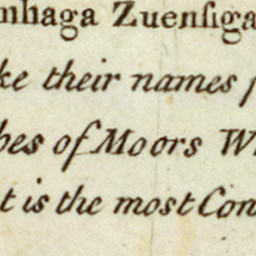 nhaga Zuenſiga
ke their names
bes of Moors W
t is the most Con